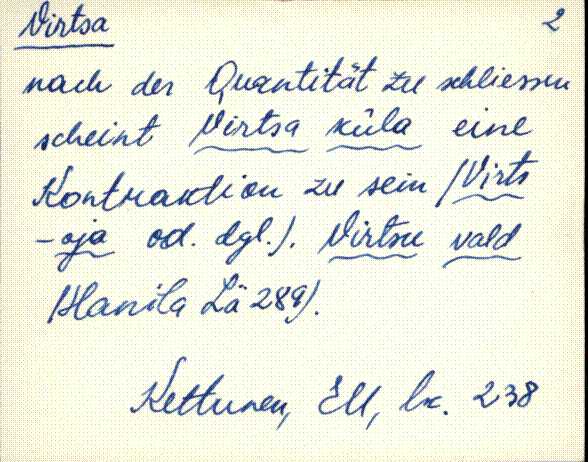 Virtsa 2
nach der Quantität zu schliessen
scheint Virtsa küla eine
Kontraktion zu sein (Virts
-oja od. dgl.). Virtsu vald
(Hanila Lä 289).
Kettunen, EM, lk. 238